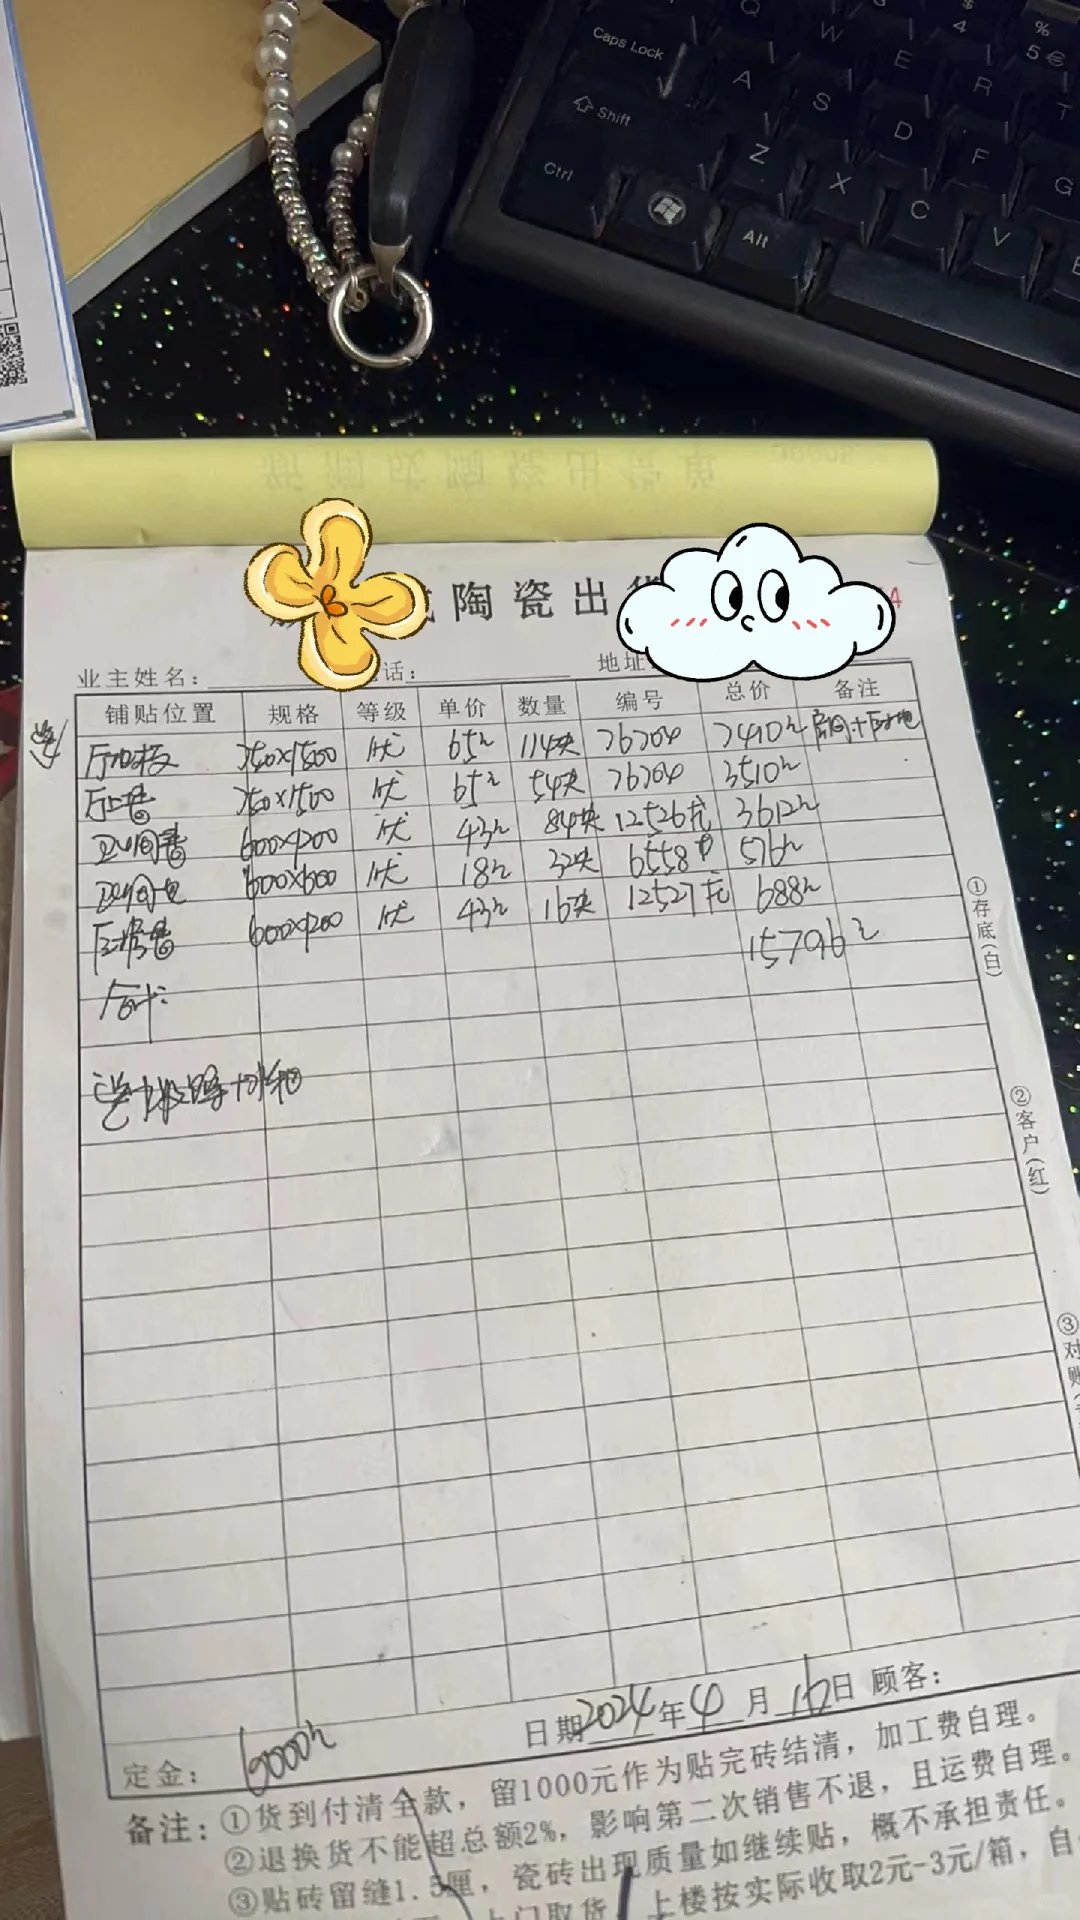 Caps Lock
Shift
Ctrl
Alt
Q W E R T
A S D F G
Z X C V
4 $
5 % €
陶瓷出
4
业主姓名： 话： 地址
铺贴位置 规格 等级 单价 数量 编号 总价 备注
送 750×1500 优 65 114块 76704 7410 房间+厅地
厅 墙 750×1500 优 65 54块 76704 3510
卫生间墙 600×1200 优 43 84块 12526 3612
卫生间地 600×600 优 18 32块 6558 576
墙 600×1200 优 43 16块 12527 688
合计： 15796
送
定金： 6000 日期2024年4月16日 顾客：
备注：①货到付清全款，留1000元作为贴完砖结清，加工费自理。
②退换货不能超总额2%，影响第二次销售不退，且运费自理。
③贴砖留缝1.5厘，瓷砖出现质量如继续贴，概不承担责任。
上门取货 上楼按实际收取2元-3元/箱，自
①存底（白）
②客户（红）
③对账